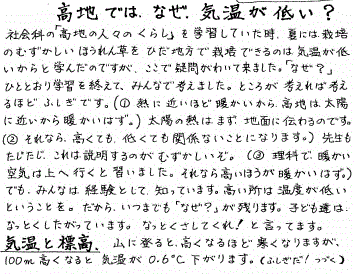 高地では、なぜ、気温が低い？
社会科の「高地の人々のくらし」を学習していた時、夏には栽培
のむずかしいほうれん草をひだ地方で栽培できるのは気温が低
いからと学んだのですが、ここで疑問がわいて来ました。「なぜ？」
ひととおり学習を終えて、みんなで考えました。ところが考えれば考え
るほどふしぎです。(① 熱に近いほど暖かいから、高地は太陽
に近いから暖かいはず。) 太陽の熱はまず地面に伝わるのです。
(② それなら、高くても、低くても関係ないことになります。) 先生も
たじたじ、これは説明するのがむずかしいぞ。(③ 理科で、暖かい
空気は上へ行くと習いました。それなら高いほうが暖かいはず。)
でも、みんなは経験として知っています。高い所は温度が低い
ということを。だから、いつまでも「なぜ？」が残ります。子ども達は、
なっとくしたがっています。なっとくさしてくれ！と言ってます。
気温と標高. 山に登ると、高くなるほど寒くなりますが、
100m高くなると気温が0.6°C下がります。(ふしぎだ！つづく)